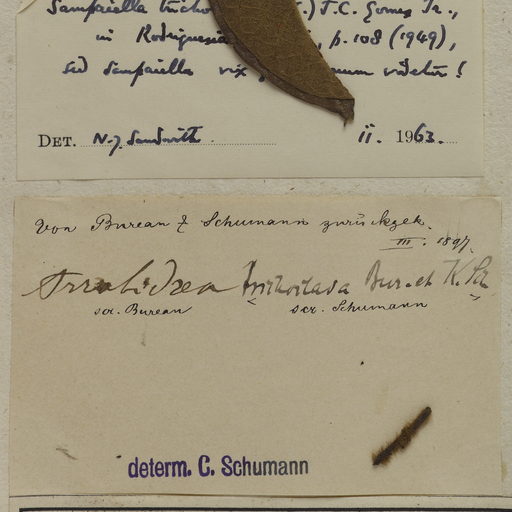 Sampaiella tricho .) J.C. Gomes Jr.,
in Rodriguesia , p. 108 (1949),
sed Sampaiella vix videtur!
DET. N.Y. Sandwith. ii. 1963.
Von Bureau & Schumann zurückgek.
III. 1897.
Arrabidaea trichoclada Bur. et K. Sch.
scr. Bureau scr. Schumann
determ. C. Schumann